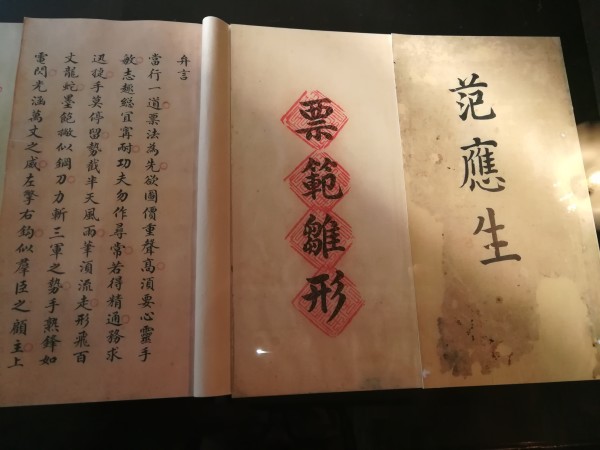 范應生
票範雛形
弁言
當行一道票法為先欲圖價重聲高須要心靈手
敏志趣總宜寗耐功夫勿作尋常若得精通務求
迅捷手莫停留勢截半天風雨筆須流走形飛百
丈龍蛇墨撇似鋼刀力斬三軍之勢手熟鋒如
電閃光涵萬丈之威左擎右鈎似羣臣之顧主上